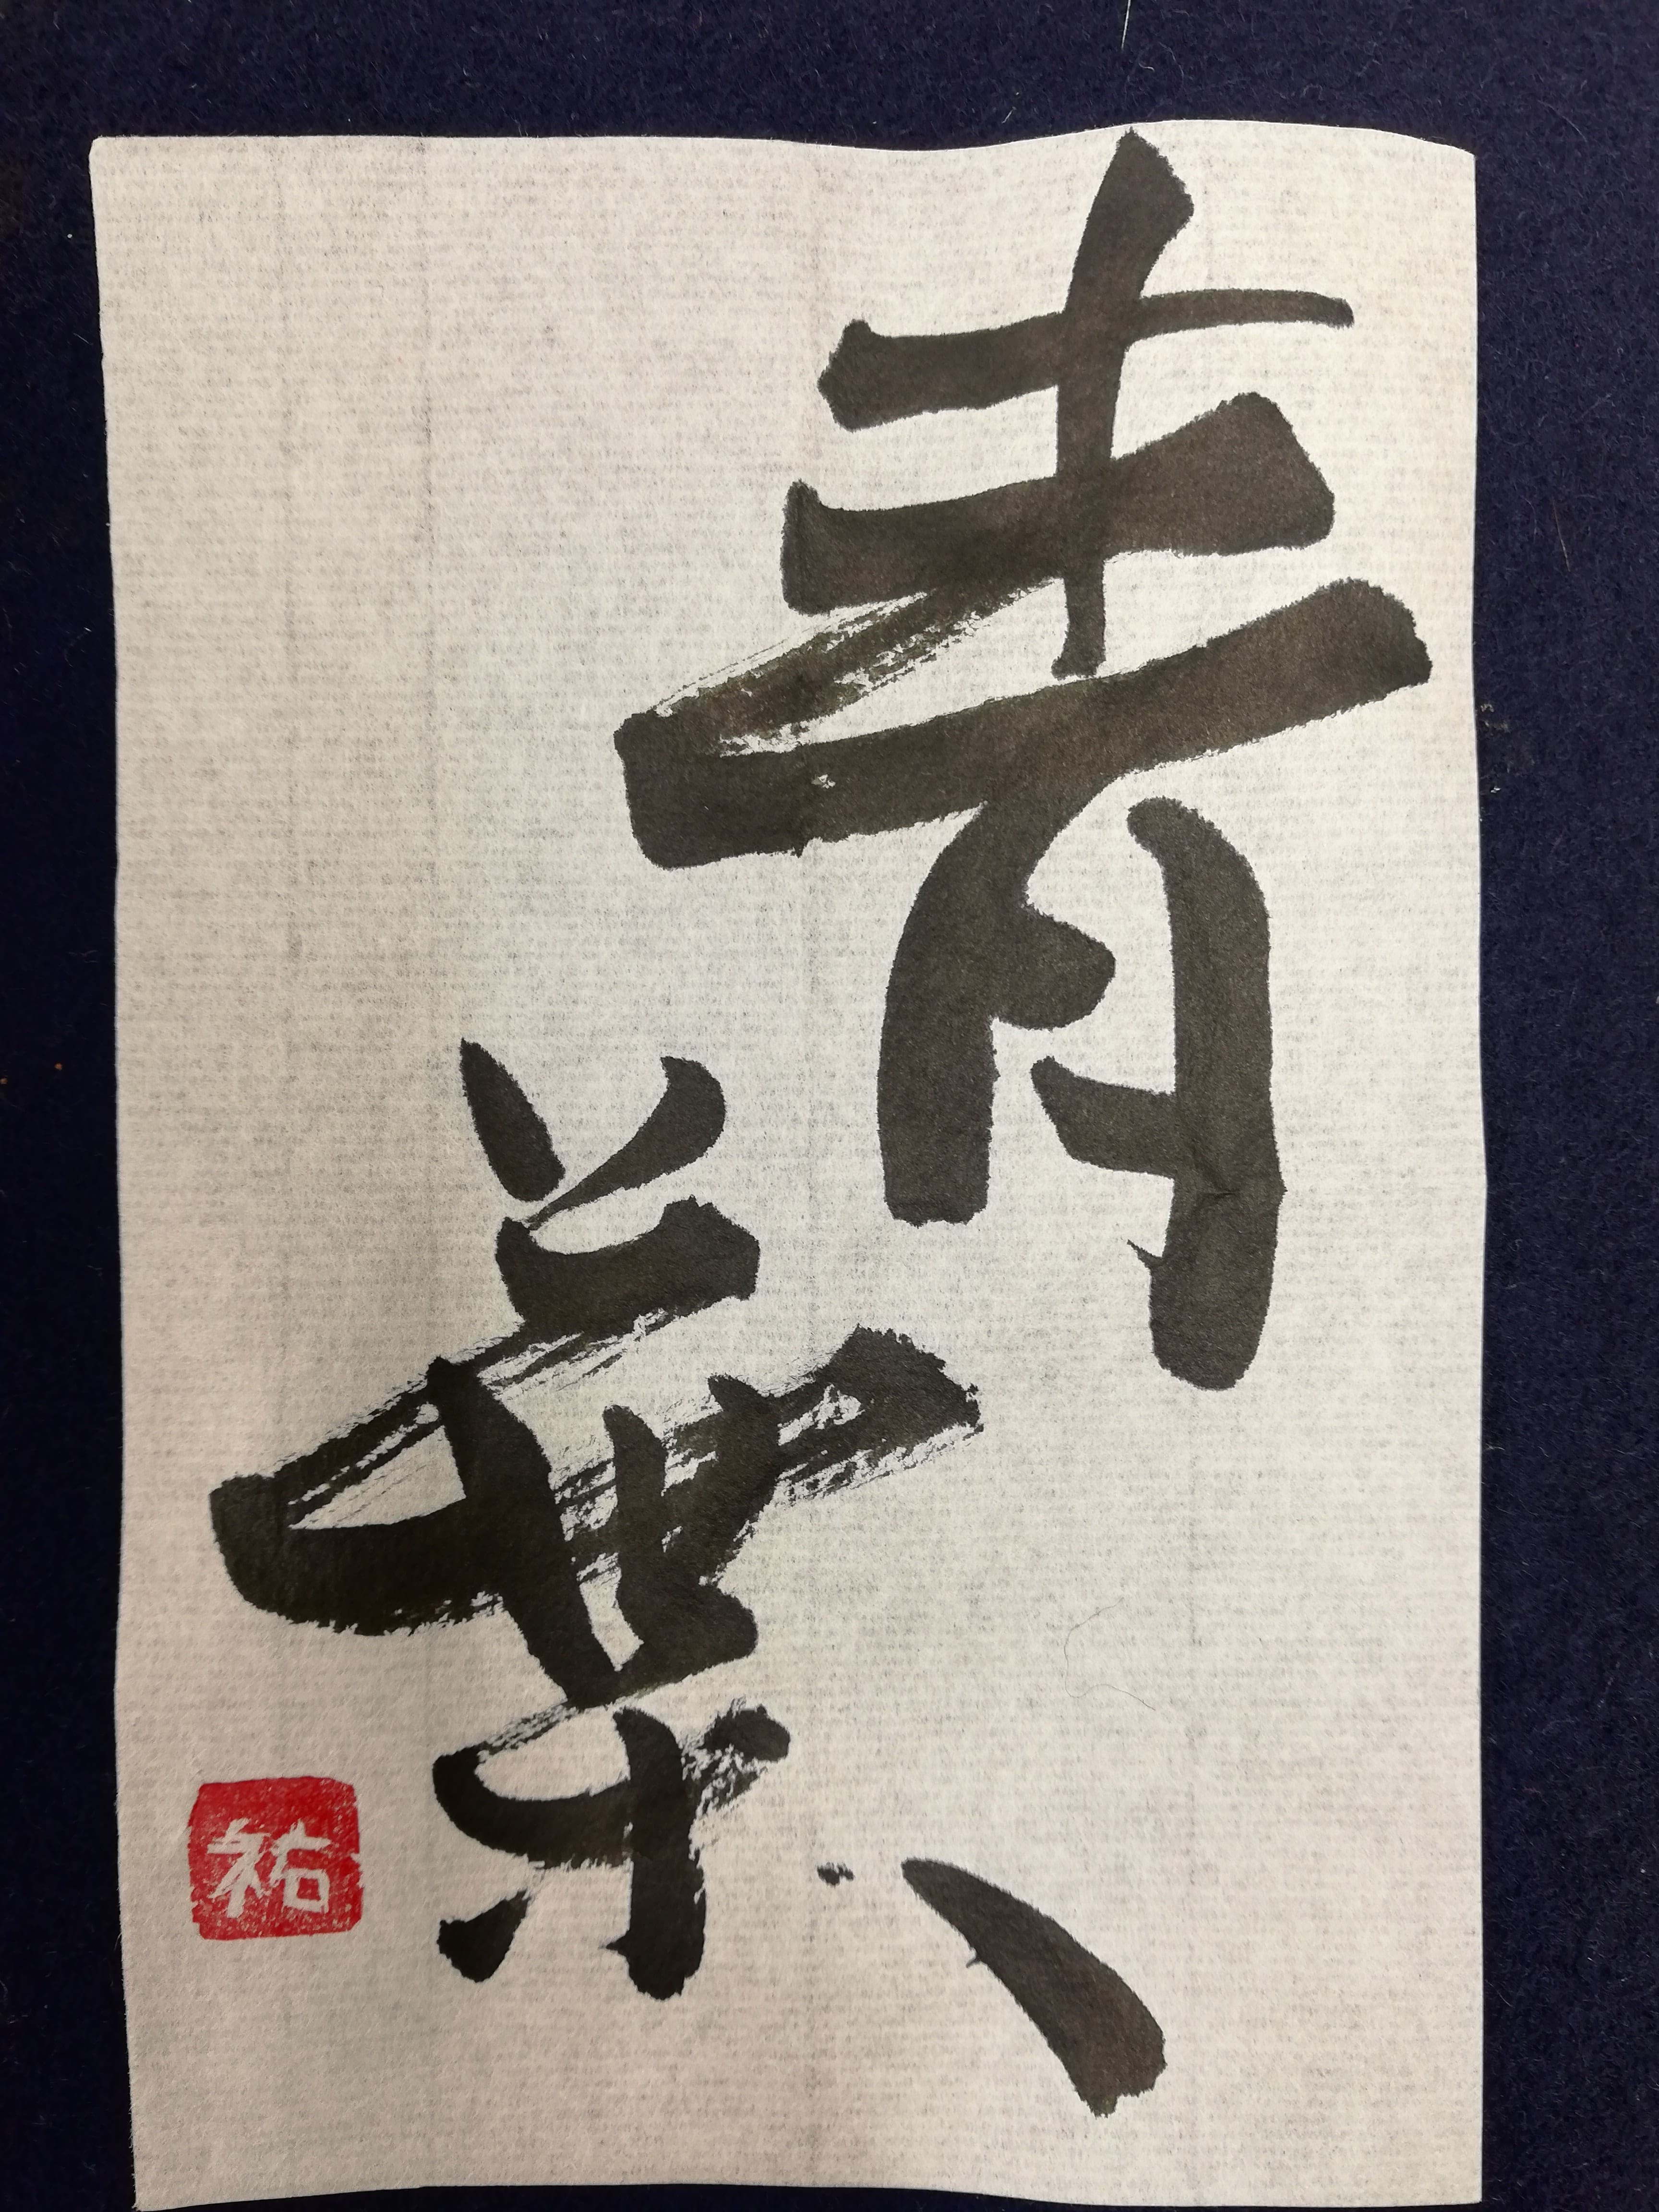 青葉
祐